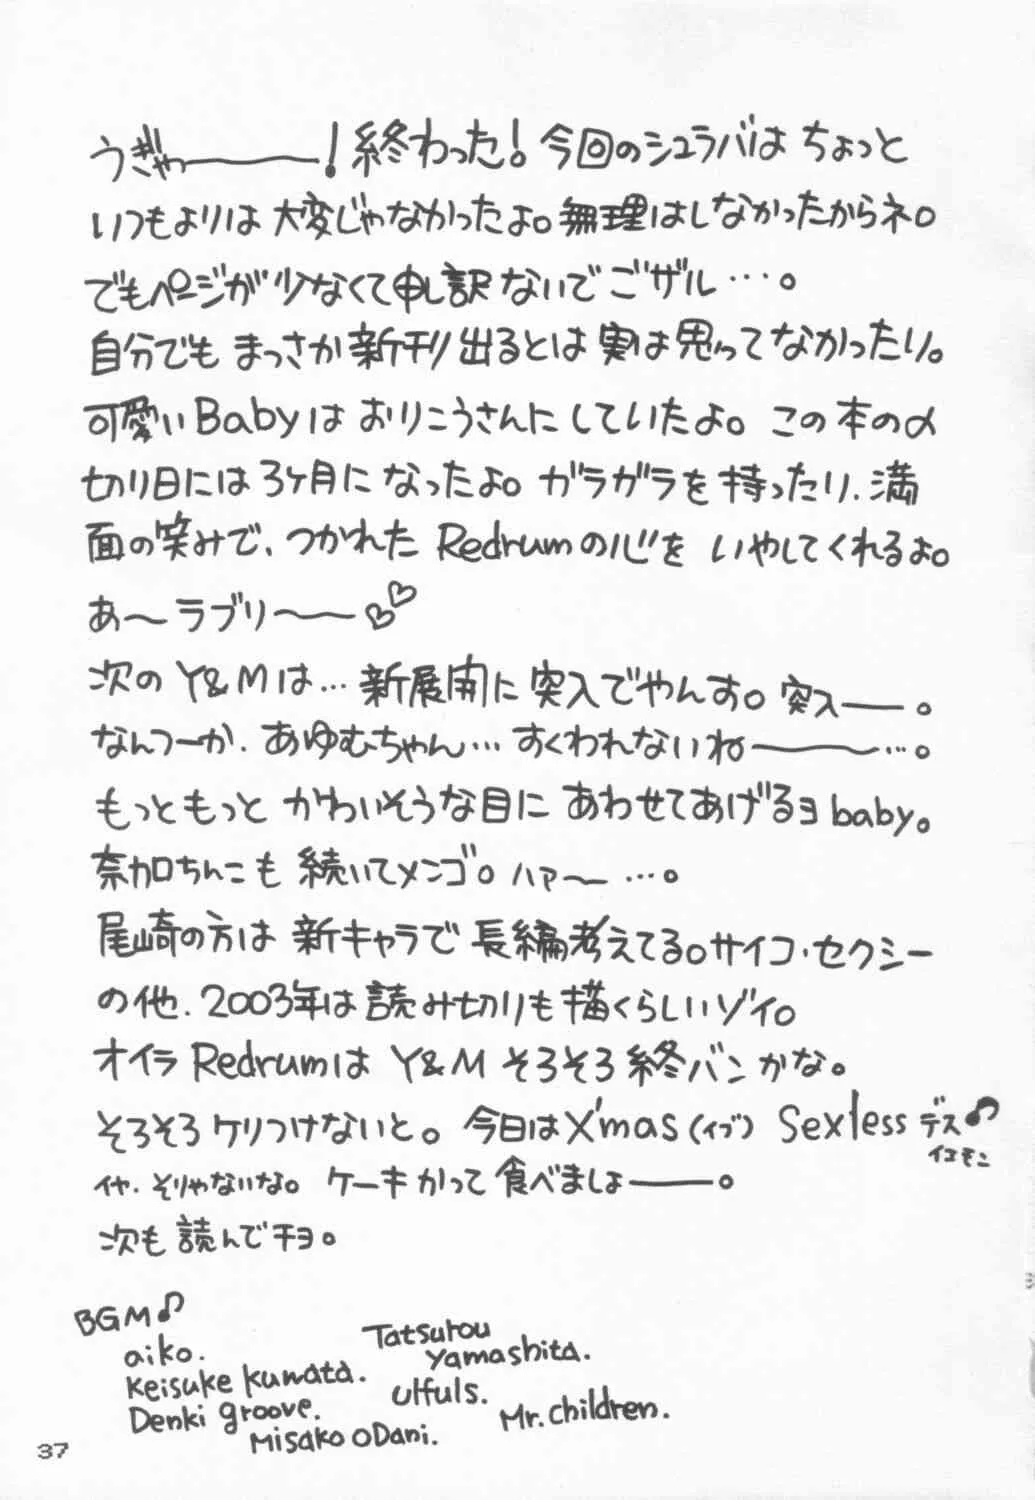 うぎゃーーー!終わった!今回のシュラバは ちょっと
いつもよりは 大変じゃなかったよ。無理はしなかったからネ。
でもページが少なくて申し訳ないでごザル…。
自分でも まっさか新刊出るとは 実は思ってなかったり。
可愛いBabyは おりこうさんにしていたよ。この本の〆
切り日には3ケ月になったよ。ガラガラを持ったり、満
面の笑みで、つかれた Redrumの心を いやしてくれるよ。
あ〜ラブリ〜ー♡♡
次の Y&Mは…新展開に突入でやんす。突入ー。
なんつーか、あゆむちゃん…すくわれないねー〜…。
もっともっと かわいそうな目に あわせてあげるヨbaby。
奈加ちんこも 続いてメンゴ。ハァ〜…。
尾崎の方は 新キャラで 長編考えてる。サイコ・セクシー
の他、2003年は読み切りも描くらしいゾイ。
オイラ Redrumは Y&M そろそろ終バンかな。
そろそろケリつけないと。今日はX'mas(イブ) Sexlessデス♪
イエモン
イヤ、そりゃないな。ケーキかって食べましょーー。
次も読んでチョ。
BGM♪
aiko.
Tatsurou
Yamashita.
Keisuke Kuwata.
Ulfuls.
Denki groove.
Mr.Children.
Misako oDani.
37